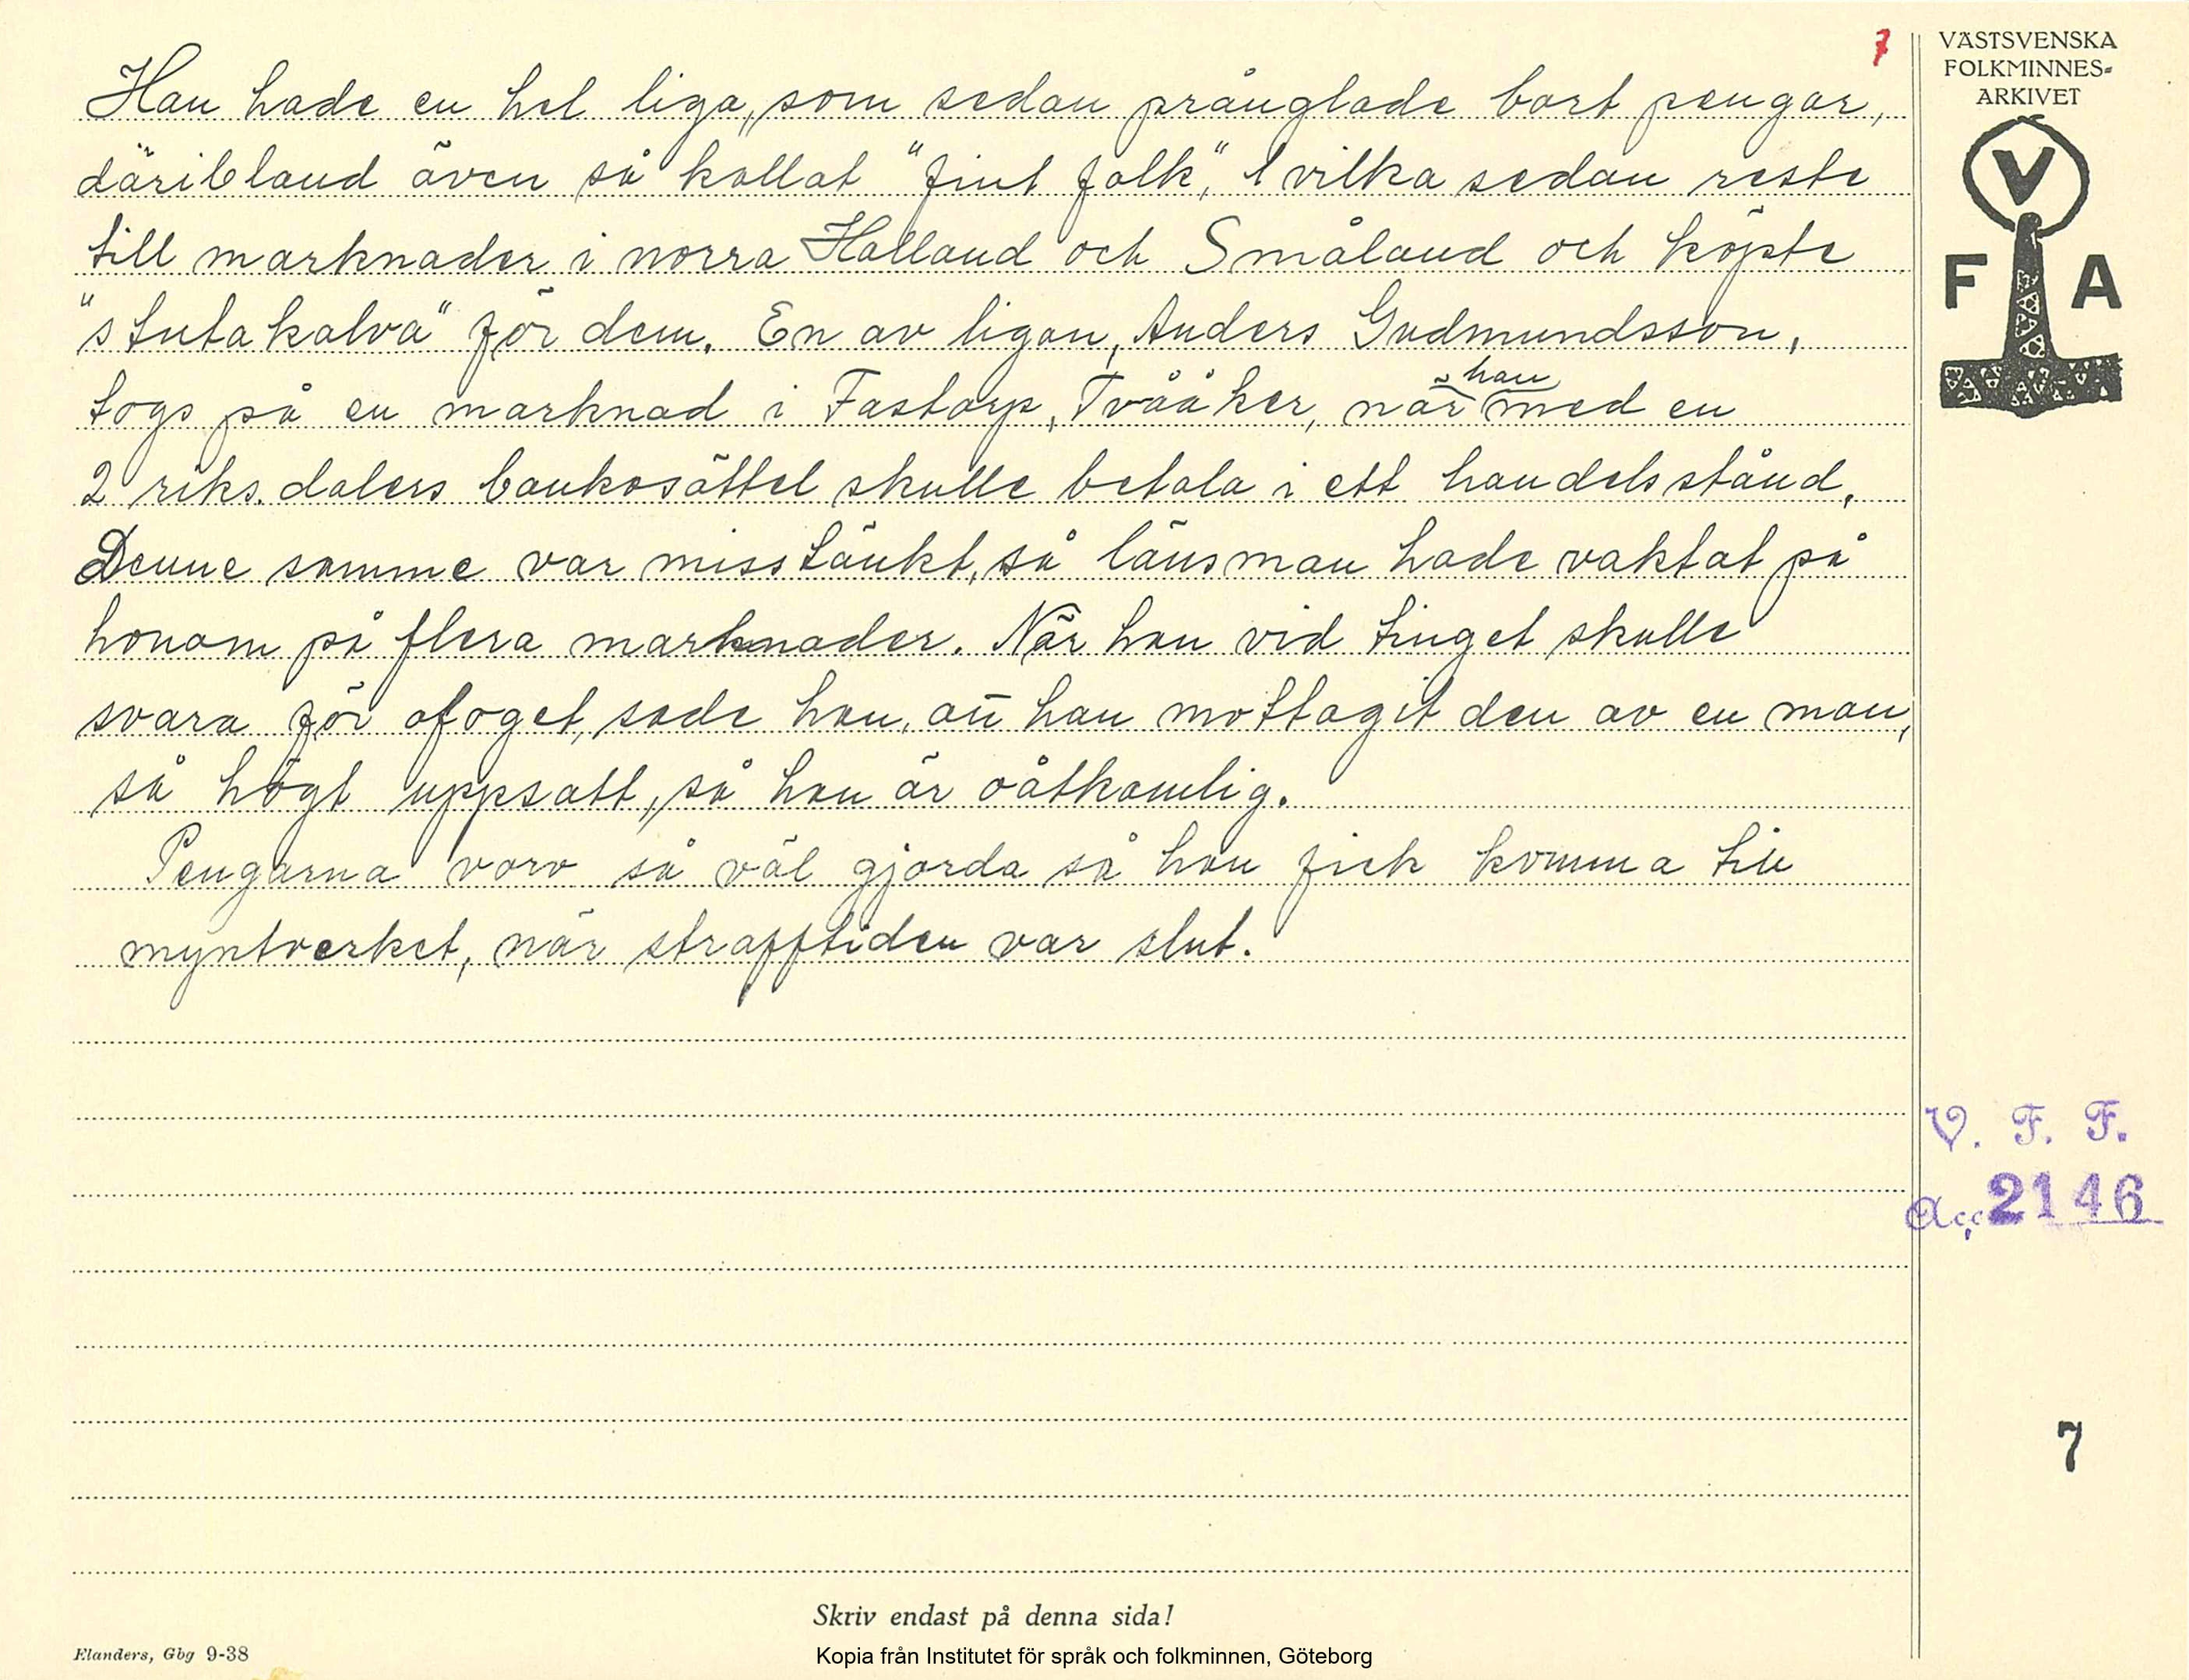 7
Han hade en hel liga, som sedan prånglade bort pengar,
däribland även så kallat "fint folk", vilka sedan reste
till marknader i norra Halland och Småland och köpte
"stutakalva" för dem. En av ligan, Anders Gudmundsson,
togs på en marknad i Fastarp, Tvååker, när han med en
2 riksdalers bankosättel skulle betala i ett handelsstånd.
Denne samme var misstänkt, så länsman hade vaktat på
honom på flera marknader. När han vid tinget skulle
svara för ofoget, sade han, att han mottagit den av en man,
så högt uppsatt, så han är oåtkomlig.
Pengarna voro så väl gjorda så han fick komma till
myntverket, när strafftiden var slut.
VÄSTSVENSKA
FOLKMINNES-
ARKIVET
V
F A
V. F. F.
Acc. 2146
7
Skriv endast på denna sida!
Elanders, Gbg 9-38
Kopia från Institutet för språk och folkminnen, Göteborg